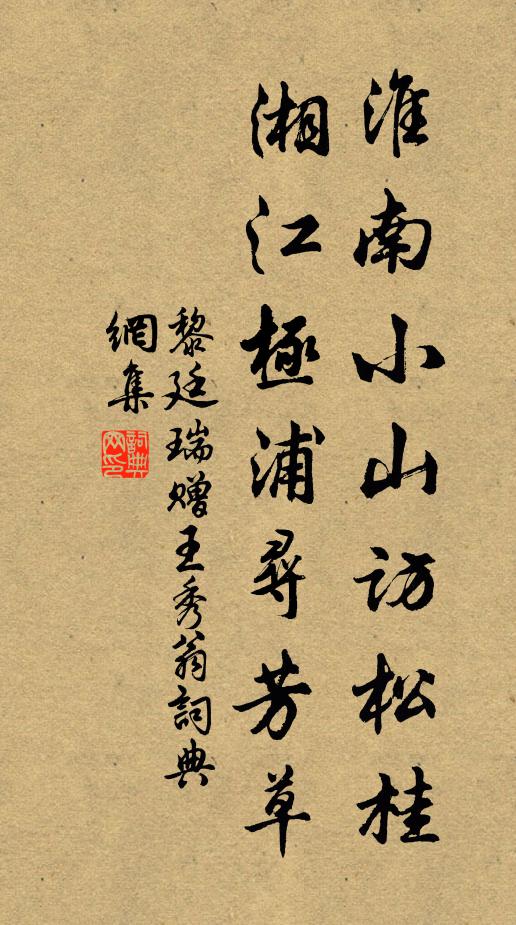 淮南小山訪松桂
湘江極浦尋芳草
黎廷瑞贈王秀翁詞典
網集
詞典
网印